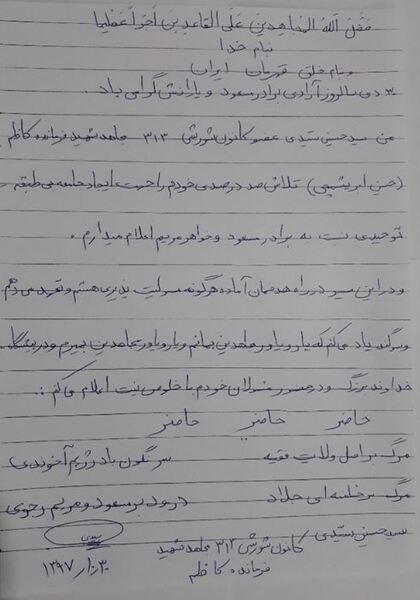 فضل الله المجاهدین علی القاعدین اجراً عظیما
بنام خدا
و بنام خلق قهرمان ایران
۳۰ دی سالروز آزادی برادر مسعود و یارانش گرامی باد.
من سید حسین سیدی عضو کانون شورشی ۳۱۳ مجاهد شهید فرمانده کاظم
(حسن ابریشمی) تلاش صد درصدی خودم را جهت ایجاد جامعه بی طبقه
توحیدی نسبت به برادر مسعود و خواهر مریم اعلام میدارم.
و در این مسیر در راه هدفمان آماده هرگونه مسولیت پذیری هستم و تعهد می دهم
و سوگند یاد می کنم که یار و یاور مجاهدین بمانم و یار و یاور مجاهدین بمیرم و در پیشگاه
خداوند بزرگ و در حضور مسولان خودم با خلوص نیت اعلام می کنم:
حاضر حاضر حاضر
مرگ بر اصل ولایت فقیه سرنگون باد رژیم آخوندی
مرگ بر خامنه ای جلاد درود بر مسعود و مریم رجوی
سید حسین سیدی کانون شورشی ۳۱۳ مجاهد شهید
فرمانده کاظم ۱۳۹۷/۱۰/۳۰